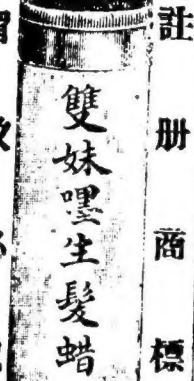 註册商標
雙妹嚜生髮蜡